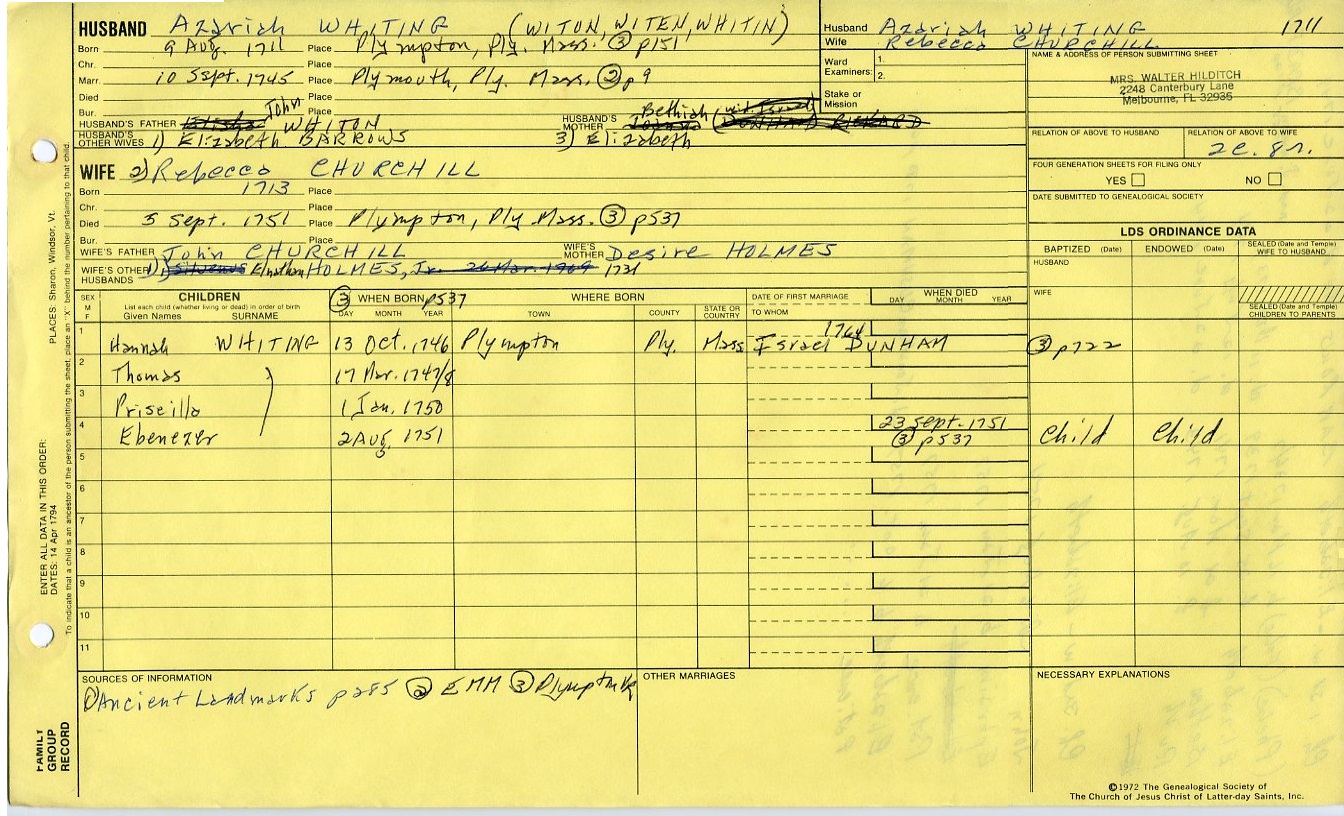 HUSBAND Azariah WHITING (WITON, WITEN, WHITIN)
Born 9 Aug. 1711 Place Plympton, Ply. Mass. ③ p151
Chr. Place
Marr. 10 Sept. 1745 Place Plymouth, Ply. Mass. ② p9
Died Place
Bur. Place
HUSBAND'S FATHER Elisha John WHITON HUSBAND'S MOTHER Bethiah (DUNHAM) RICKARD
HUSBAND'S OTHER WIVES 1) Elizabeth BARROWS 3) Elizabeth
Husband Azariah WHITING 1711
Wife Rebecca CHURCHILL
Ward Examiners: 1.
2.
Stake or Mission
NAME & ADDRESS OF PERSON SUBMITTING SHEET
MRS. WALTER HILDITCH
2248 Canterbury Lane
Melbourne, FL 32935
RELATION OF ABOVE TO HUSBAND RELATION OF ABOVE TO WIFE
2c. 8r.
FOUR GENERATION SHEETS FOR FILING ONLY
YES NO
DATE SUBMITTED TO GENEALOGICAL SOCIETY
WIFE 2) Rebecca CHURCHILL
Born 1713 Place
Chr. Place
Died 5 Sept. 1751 Place Plympton, Ply Mass. ③ p537
Bur. Place
WIFE'S FATHER John CHURCHILL WIFE'S MOTHER Desire HOLMES
WIFE'S OTHER HUSBANDS 1) Silvanus Elnathan HOLMES, Jr. 26 Mar. 1969 1731
LDS ORDINANCE DATA
BAPTIZED (Date) ENDOWED (Date) SEALED (Date and Temple) WIFE TO HUSBAND
HUSBAND
WIFE
SEALED (Date and Temple) CHILDREN TO PARENTS
SEX M F CHILDREN List each child (whether living or dead) in order of birth Given Names SURNAME ③ WHEN BORN p537 DAY MONTH YEAR WHERE BORN TOWN COUNTY STATE OR COUNTRY DATE OF FIRST MARRIAGE TO WHOM WHEN DIED DAY MONTH YEAR
1 Hannah WHITING 13 Oct. 1746 Plympton Ply. Mass 1764 Israel DUNHAM ③ p722
2 Thomas 17 Mar. 1747/8
3 Priscilla 1 Jan. 1750
4 Ebenezer 2 Aug. 1751 23 Sept. 1751 ③ p537 Child Child
5
6
7
8
9
10
11
SOURCES OF INFORMATION
① Ancient Landmarks p285 ② EMM ③ Plympton VR
OTHER MARRIAGES
NECESSARY EXPLANATIONS
©1972 The Genealogical Society of
The Church of Jesus Christ of Latter-day Saints, Inc.
FAMILY GROUP RECORD
ENTER ALL DATA IN THIS ORDER:
DATES: 14 Apr 1794
PLACES: Sharon, Windsor, Vt.
To indicate that a child is an ancestor of the person submitting the sheet, place an "X" behind the number pertaining to that child.